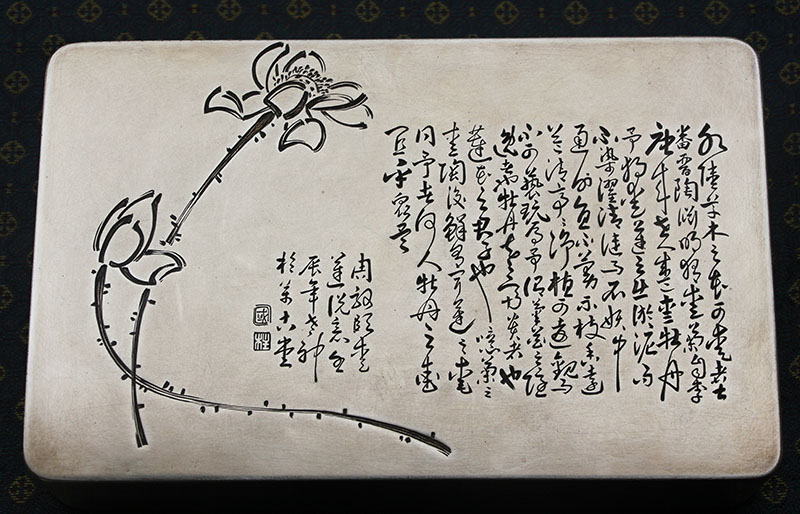 水陸草木之花可愛者甚
蕃晋陶淵明獨愛菊自李
唐来世人盛愛牡丹
予獨愛蓮之出淤泥而
不染濯清漣而不妖中
通外直不蔓不枝香遠
益清亭亭净植可遠觀
不可褻玩焉予谓菊花之隐
逸者牡丹花之富貴者也
蓮花之君子也噫菊之
愛陶後鮮有聞蓮之愛
同予者何人牡丹之愛
宜乎眾矣
周敦頤愛
蓮説意
辰年
於